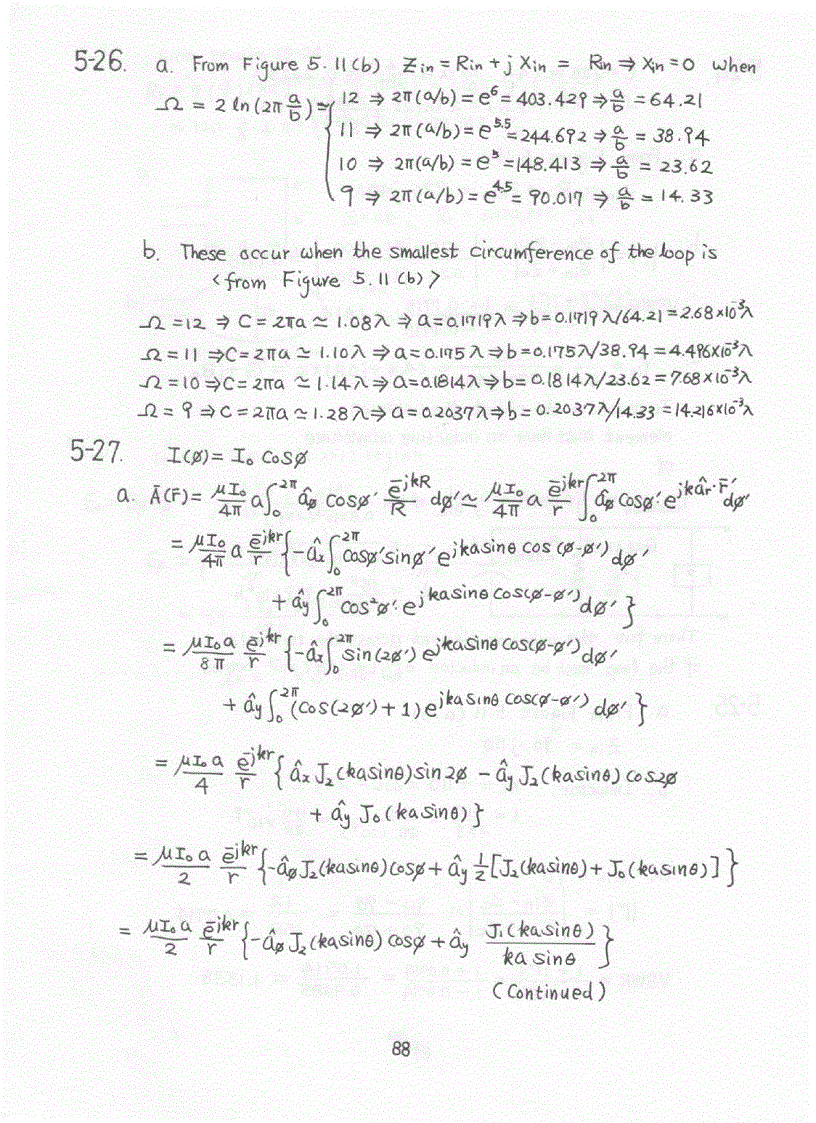 5-26. a. From Figure 5.11(b) Zin = Rin + j Xin = Rin ⇒ Xin = 0 when
Ω = 2 ln(2π a/b) = { 12 ⇒ 2π(a/b) = e^6 = 403.429 ⇒ a/b = 64.21
11 ⇒ 2π(a/b) = e^5.5 = 244.692 ⇒ a/b = 38.94
10 ⇒ 2π(a/b) = e^5 = 148.413 ⇒ a/b = 23.62
9 ⇒ 2π(a/b) = e^4.5 = 90.017 ⇒ a/b = 14.33
b. These occur when the smallest circumference of the loop is
<from Figure 5.11(b)>
Ω = 12 ⇒ C = 2πa ≃ 1.08λ ⇒ a = 0.1719λ ⇒ b = 0.1719λ/64.21 = 2.68×10^-3 λ
Ω = 11 ⇒ C = 2πa ≃ 1.10λ ⇒ a = 0.175λ ⇒ b = 0.175λ/38.94 = 4.496×10^-3 λ
Ω = 10 ⇒ C = 2πa ≃ 1.14λ ⇒ a = 0.1814λ ⇒ b = 0.1814λ/23.62 = 7.68×10^-3 λ
Ω = 9 ⇒ C = 2πa ≃ 1.28λ ⇒ a = 0.2037λ ⇒ b = 0.2037λ/14.33 = 14.216×10^-3 λ
5-27. I(ø) = I₀ cosø
a. Ā(r̄) = μI₀/4π a ∫₀^2π âø cosø' e^-jkR/R dø' ≃ μI₀/4π a e^-jkr/r ∫₀^2π âø cosø' e^jkâr·r̄' dø'
= μI₀/4π a e^-jkr/r { -âx ∫₀^2π cosø' sinø' e^jka sinθ cos(ø-ø') dø'
+ ây ∫₀^2π cos²ø' · e^jka sinθ cos(ø-ø') dø' }
= μI₀a/8π e^-jkr/r { -âx ∫₀^2π sin(2ø') e^jka sinθ cos(ø-ø') dø'
+ ây ∫₀^2π (cos(2ø')+1) e^jka sinθ cos(ø-ø') dø' }
= μI₀a/4 e^-jkr/r { âx J₂(ka sinθ) sin2ø - ây J₂(ka sinθ) cos2ø
+ ây J₀(ka sinθ) }
= μI₀a/2 e^-jkr/r { -âø J₂(ka sinθ) cosø + ây 1/2 [J₂(ka sinθ) + J₀(ka sinθ)] }
= μI₀a/2 e^-jkr/r { -âø J₂(ka sinθ) cosø + ây J₁(ka sinθ)/ka sinθ }
(Continued)
88